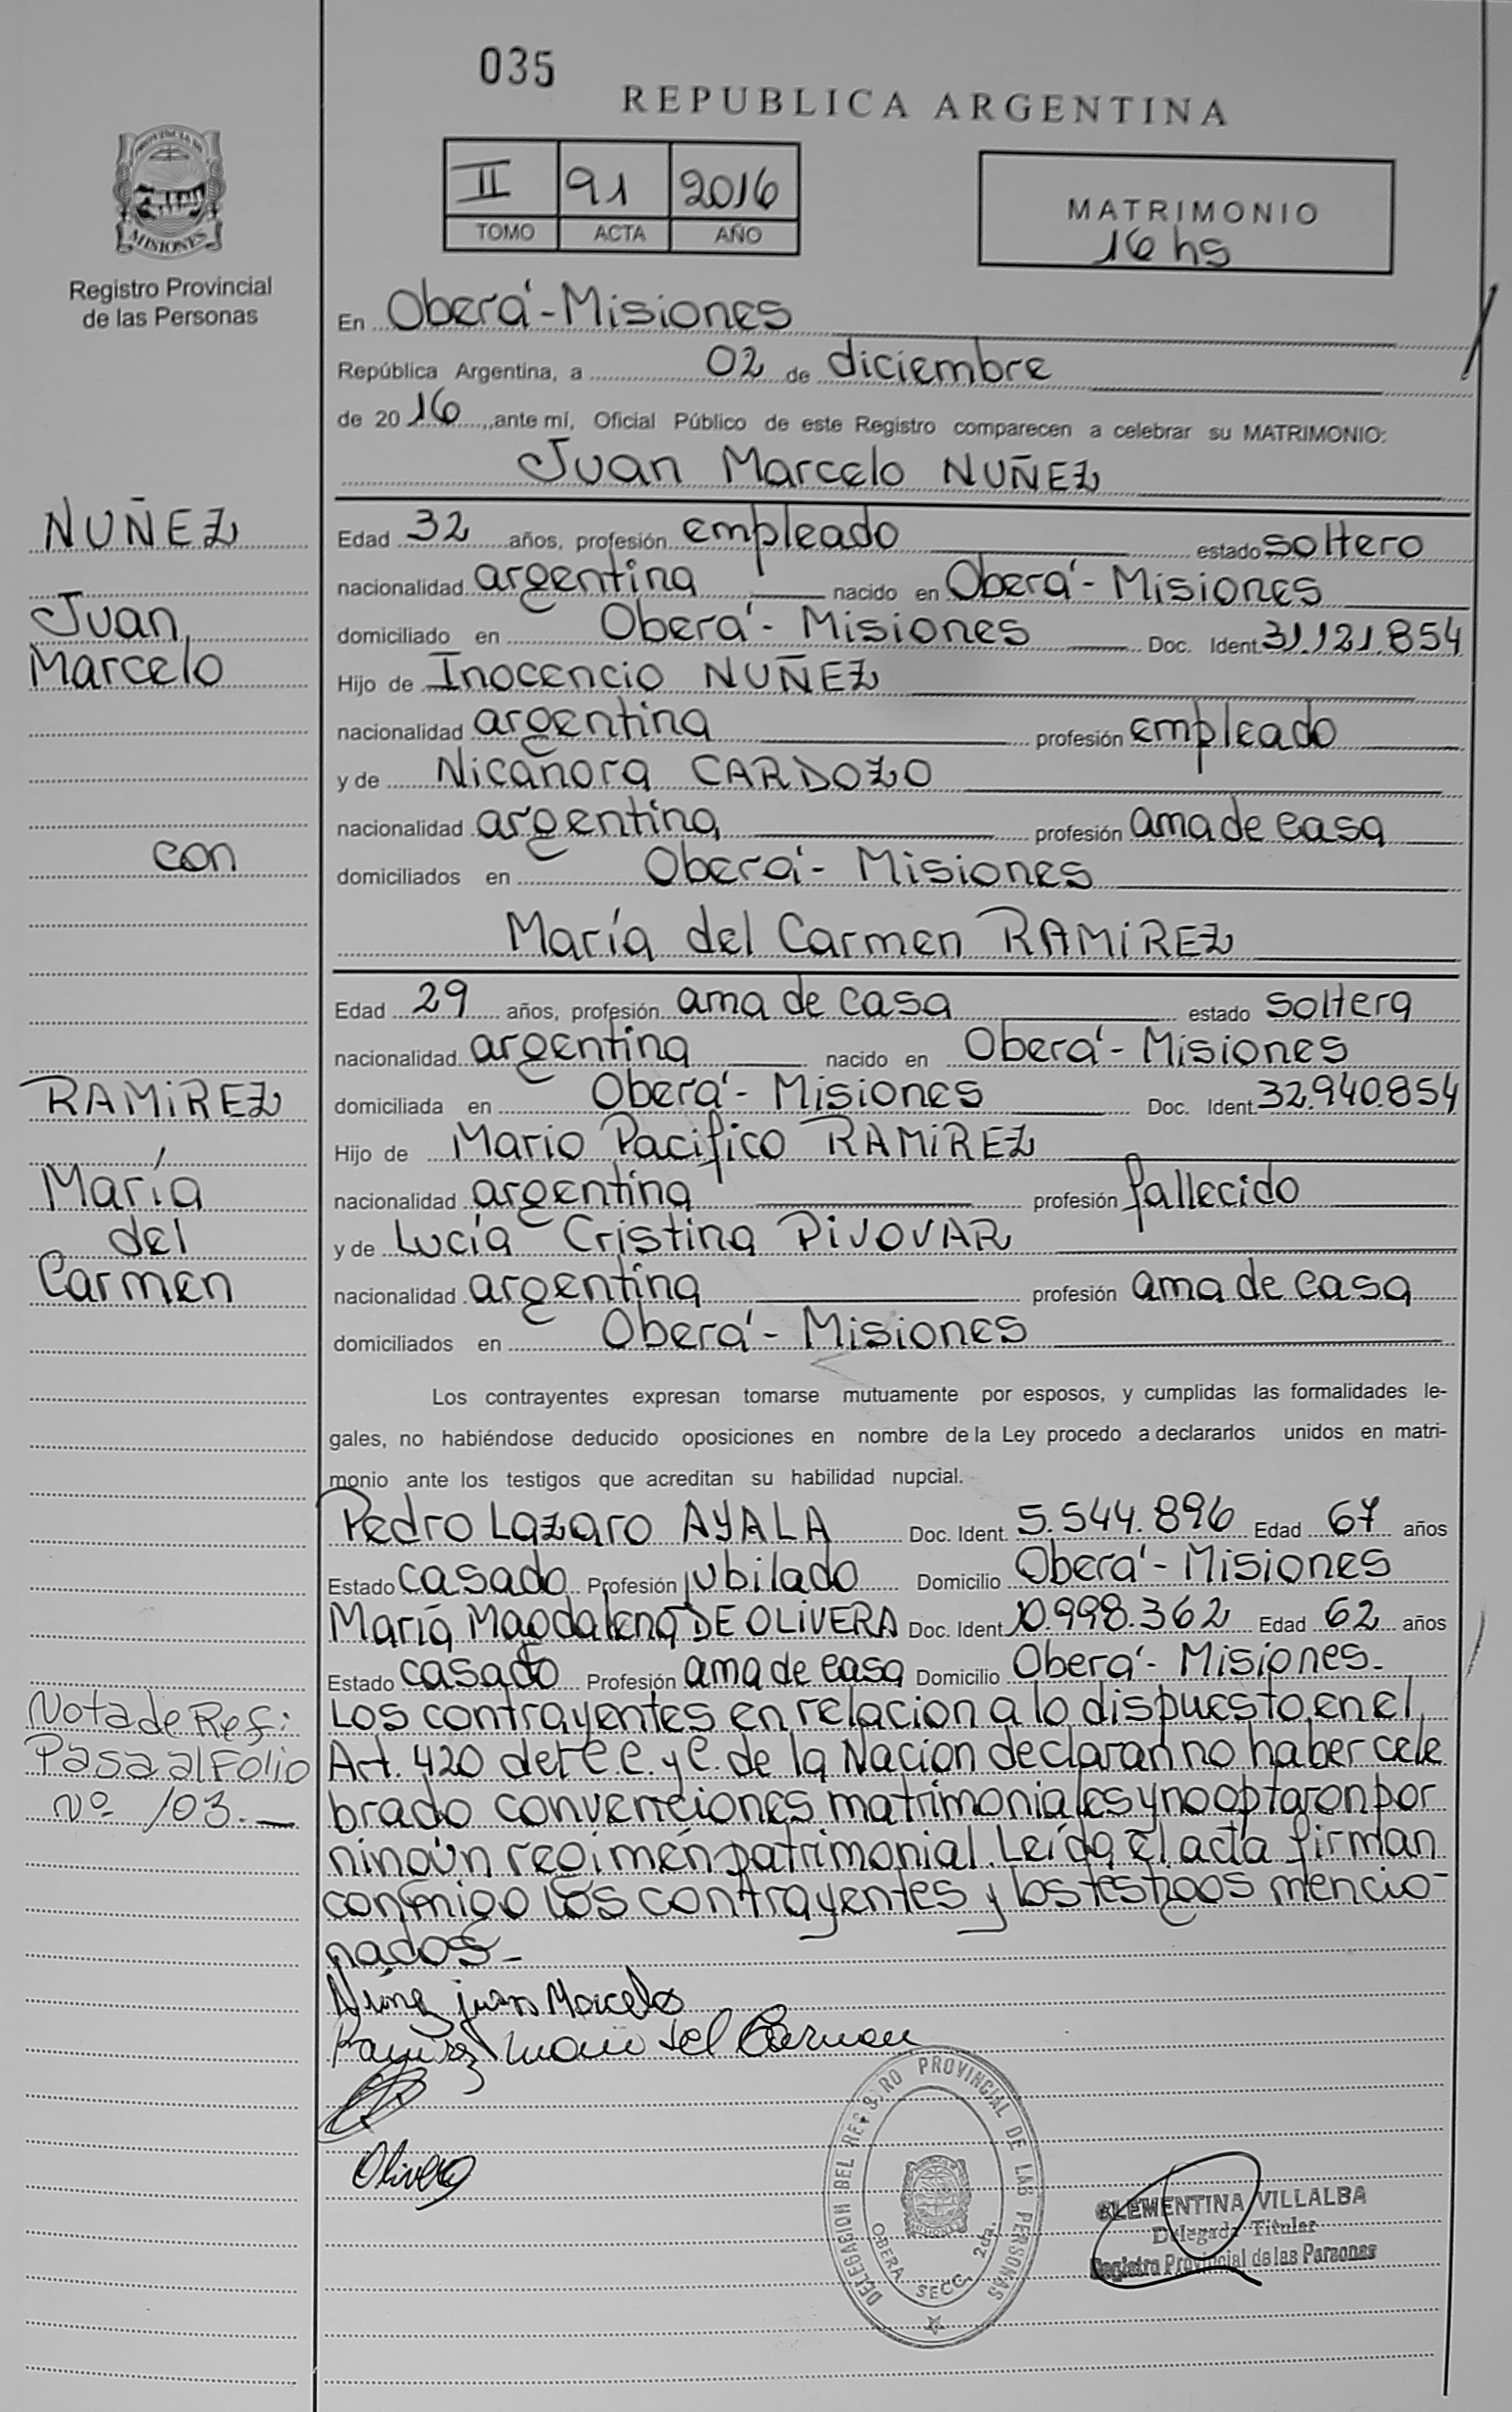 035
REPUBLICA ARGENTINA
PROVINCIA DE
MISIONES
Registro Provincial
de las Personas
II 91 2016
TOMO ACTA AÑO
MATRIMONIO
16 hs
En Oberá - Misiones
República Argentina, a 02 de diciembre
de 2016, ante mí, Oficial Público de este Registro comparecen a celebrar su MATRIMONIO:
Juan Marcelo NUÑEZ
NUÑEZ
Juan
Marcelo
con
RAMIREZ
María
del
Carmen
Edad 32 años, profesión empleado estado soltero
nacionalidad argentina nacido en Oberá - Misiones
domiciliado en Oberá - Misiones Doc. Ident. 31.121.854
Hijo de Inocencio NUÑEZ
nacionalidad argentina profesión empleado
y de Nicañora CARDOZO
nacionalidad argentina profesión ama de casa
domiciliados en Oberá - Misiones
María del Carmen RAMIREZ
Edad 29 años, profesión ama de casa estado soltera
nacionalidad argentina nacido en Oberá - Misiones
domiciliada en Oberá - Misiones Doc. Ident. 32.940.854
Hijo de Mario Pacifico RAMIREZ
nacionalidad argentina profesión fallecido
y de Lucía Cristina PIVOVAR
nacionalidad argentina profesión ama de casa
domiciliados en Oberá - Misiones
Los contrayentes expresan tomarse mutuamente por esposos, y cumplidas las formalidades le-
gales, no habiéndose deducido oposiciones en nombre de la Ley procedo a declararlos unidos en matri-
monio ante los testigos que acreditan su habilidad nupcial.
Pedro Lazaro AYALA Doc. Ident. 5.544.896 Edad 67 años
Estado casado Profesión jubilado Domicilio Oberá - Misiones
María Magdalena DE OLIVERA Doc. Ident. 10.998.362 Edad 62 años
Estado casado Profesión ama de casa Domicilio Oberá - Misiones.
Nota de Ref:
Pasa al Folio
Nº 103.
Los contrayentes en relacion a lo dispuesto en el
Art. 420 del C.C. y C. de la Nacion declaran no haber cele
brado convenciones matrimoniales y no optaron por
ningún regimen patrimonial. Leída el acta firman
conmigo los contrayentes y los testigos mencio-
nados-
Nuñez juan Marcelo
Ramirez Maria del Carmen
Olivera
DELEGACION DEL REGISTRO PROVINCIAL DE LAS PERSONAS
OBERA SECC. 2da.
CLEMENTINA VILLALBA
Delegada Titular
Registro Provincial de las Personas